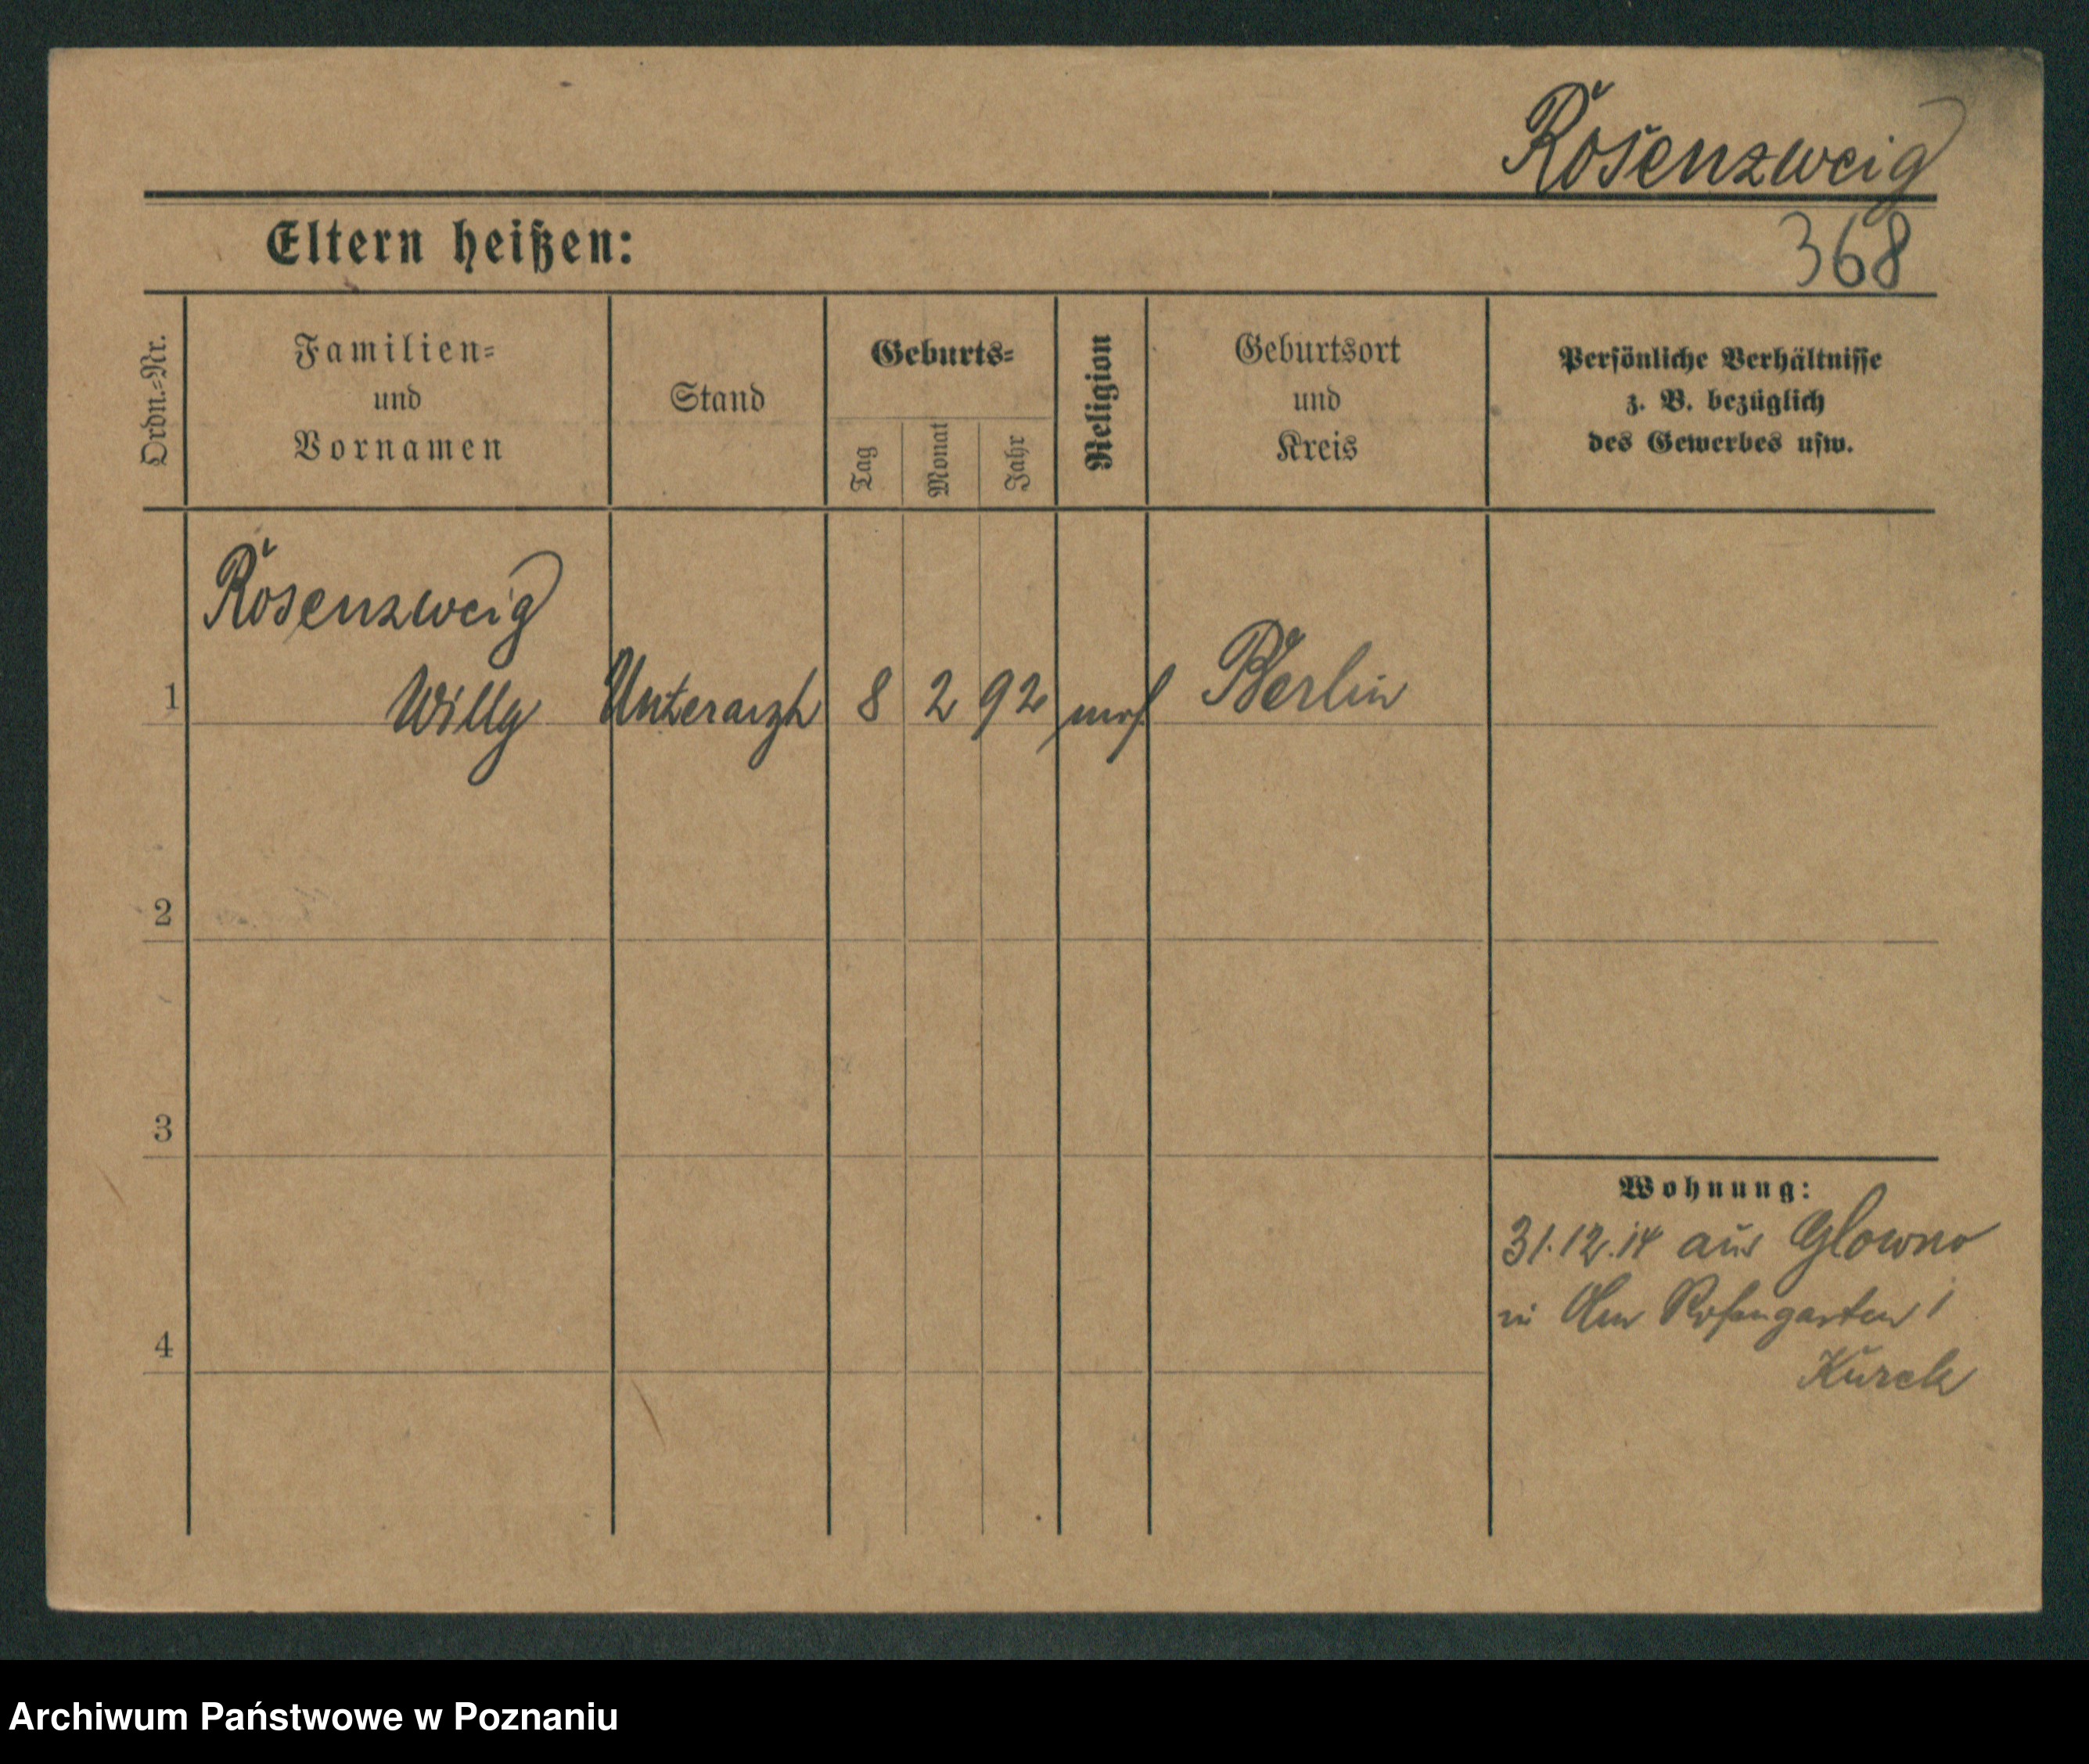 Rosenzweig
Eltern heißen:
368
Ordn.-Nr.
Familien-
und
Vornamen
Stand
Geburts-
Tag
Monat
Jahr
Religion
Geburtsort
und
Kreis
Persönliche Verhältnisse
z. B. bezüglich
des Gewerbes usw.
Rosenzweig
1 Willy Unterarzt 8 2 92 mos Berlin
2
3
4
Wohnung:
31.12.14 aus Glowno
in Am Rosengarten 1
Kurek
Archiwum Państwowe w Poznaniu